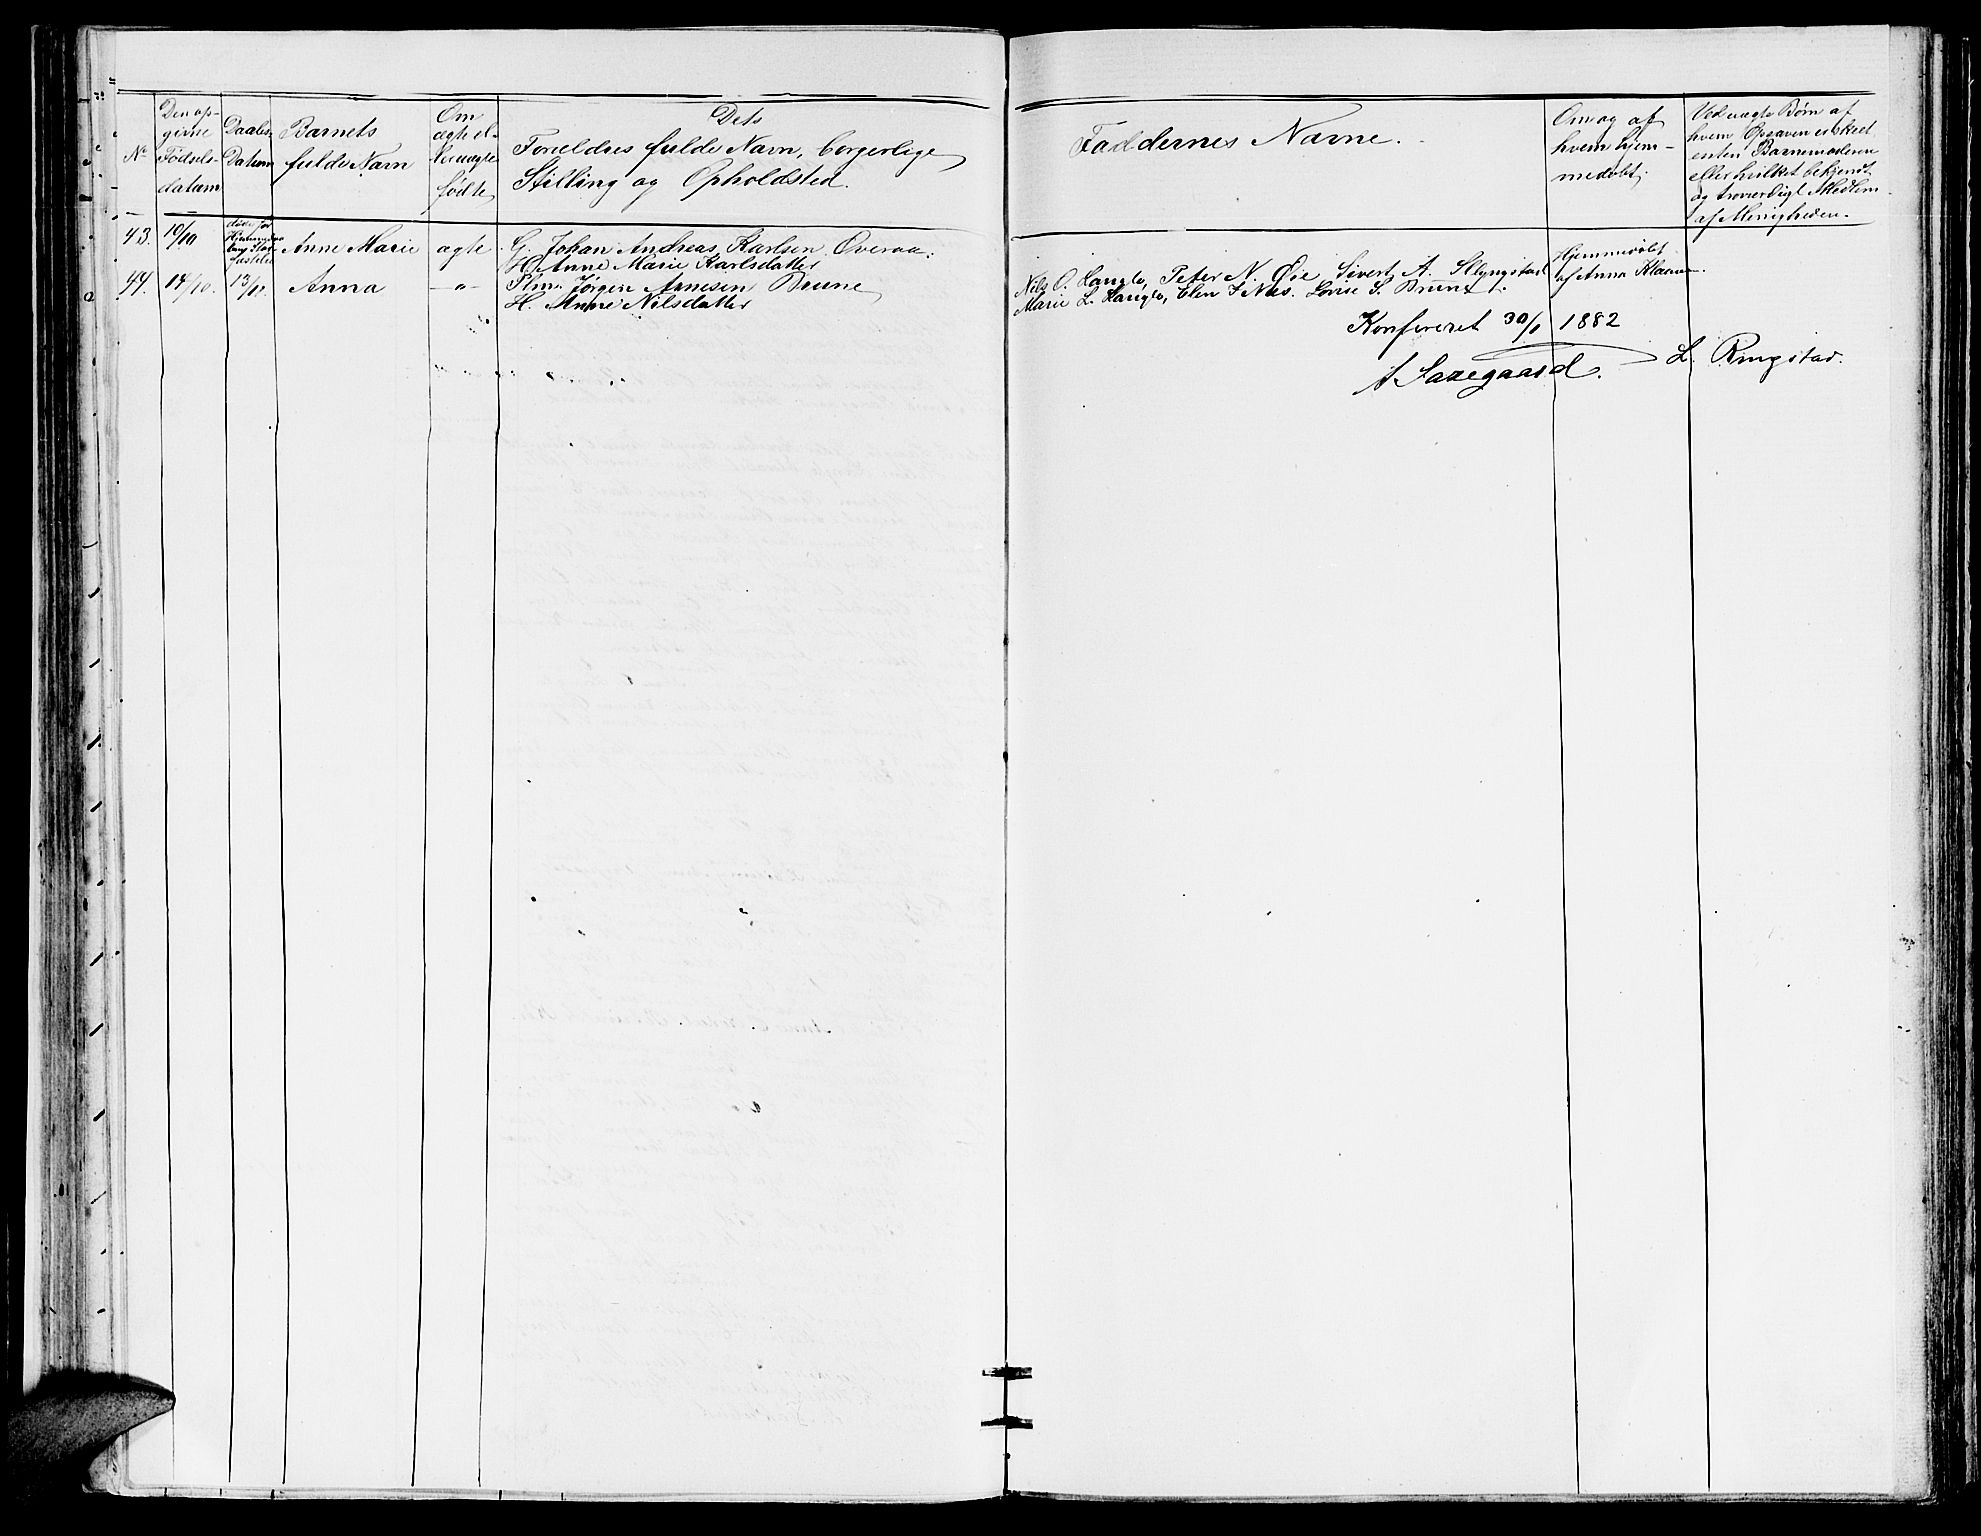 No
Den op-
givne
Fødsels-
datum
Daabs-
Datum
Barnets
fulde Navn
Om
ægte el-
ler uægte
født
Dets
Forældres fulde Navn, borgerlige
Stilling og Opholdsted.
Faddernes Navne.
Om og af
hvem hjem-
medøbt.
Ved uægte Børn af
hvem Opgaven er skeet
enten Barnemoderen
eller hvilket bekjendt
og troværdigt Medlem
af Menigheden.
43. 10/10 døde før
Anne Marie ægte G. Johan Andreas Karlsen Overaa.
H. Anne Marie Karlsdatter
44. 14/10. 13/11 Anna —"— Jørgen Arnesen Brune
H. Anne Nilsdatter
Nils O. Langlo, Peter N. Øie, Sivert A. Slyngstad
Marie L. Langlo, Elen J. Lovise S. Brune.
Hjemmedøbt
af Anna
Konfereret 30/1 1882
A Saxegaard. L. Ringstad.